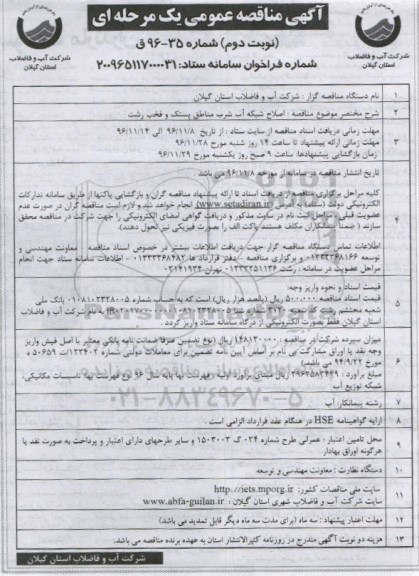 آگهی مناقصه عمومی یک مرحله ای
(نوبت دوم) شماره ۳۵-۹۶ ق
شماره فراخوان سامانه ستاد: ۲۰۰۹۶۵۱۱۷۰۰۰۰۳۱
شرکت آب و فاضلاب
استان گیلان
شرکت آب و فاضلاب
استان گیلان
۱ نام دستگاه مناقصه گزار : شرکت آب و فاضلاب استان گیلان
۲ شرح مختصر موضوع مناقصه : اصلاح شبکه آب شرب مناطق پستک و فخب رشت
۳ مهلت زمانی دریافت اسناد مناقصه از سایت ستاد : از تاریخ ۹۶/۱۱/۸ الی ۹۶/۱۱/۱۴
مهلت زمانی ارائه پیشنهاد تا ساعت ۱۴ روز شنبه مورخ ۹۶/۱۱/۲۸
زمان بازگشایی پیشنهادها: ساعت ۹ صبح روز یکشنبه مورخ ۹۶/۱۱/۲۹
تاریخ انتشار مناقصه در سامانه از مورخه ۹۶/۱۱/۸ می باشد.
۴ کلیه مراحل برگزاری مناقصه از دریافت اسناد تا ارائه پیشنهاد مناقصه گران و بازگشایی پاکتها از طریق سامانه تدارکات
الکترونیکی دولت (ستاد) به آدرس (www.setadiran.ir) انجام خواهد شد و لازم است مناقصه گران در صورت عدم
عضویت قبلی، مراحل ثبت نام در سایت مذکور و دریافت گواهی امضای الکترونیکی را جهت شرکت در مناقصه محقق
سازند ( ضمناً پیشنهادگران مکلف هستند پاکت الف را بصورت فیزیکی نیز تحویل دهند).
اطلاعات تماس دستگاه مناقصه گزار جهت دریافت اطلاعات بیشتر در خصوص اسناد مناقصه : معاونت مهندسی و
توسعه ۰۱۳۳۳۳۶۸۱۶۶ و برگزاری مناقصه - دفتر قراردادها ۰۱۳۳۳۳۶۸۴۸۲ - اطلاعات سامانه ستاد جهت انجام
مراحل عضویت در سامانه : رشت ۰۱۳۳۳۲۵۱۱۳۶ تهران ۰۲۱۴۱۹۳۴
۵ قیمت اسناد و نحوه واریز وجه:
قیمت اسناد مناقصه ۵۰۰۰۰۰ ریال (پانصد هزار ریال) است که به حساب شماره ۰۱۰۸۱۰۲۳۲۸۰۰۵ بانک ملی
به نام شرکت آب و فاضلاب
استان گیلان فقط بصورت الکترونیکی از درگاه سامانه ستاد واریز گردد.
۶ میزان سپرده شرکت در مناقصه : ۱۴۸۱۳۰۰۰۰ ریال (نوع تضمین صرفاً ضمانت نامه بانکی معتبر یا اصل فیش واریز
وجه نقد یا اوراق مشارکت بی نام بر اساس آیین نامه تضمین برای معاملات دولتی شماره ۱۲۳۴۰۲/ت ۵۰۶۵۹ ه
مورخ ۹۴/۹/۲۲ می باشد)
مبلغ برآورد : ۲۹۶۲۵۸۲۴۲۹ ریال
شبکه توزیع آب
۷ رشته پیمانکار: آب
۸ ارایه گواهینامه HSE در هنگام عقد قرارداد الزامی است .
۹ محل تامین اعتبار : عمرانی طرح شماره ۰۳۴ گ ۱۵۰۳۰۰۳ و سایر طرحهای دارای اعتبار و پرداخت به صورت نقد یا
هرگونه اوراق بهادار
۱۰ دستگاه نظارت : معاونت مهندسی و توسعه
۱۱ سایت ملی مناقصات کشور: http://iets.mporg.ir
سایت شرکت آب و فاضلاب شهری استان گیلان : www.abfa-guilan.ir
۱۲ مهلت اعتبار پیشنهاد : سه ماه (برای مدت سه ماه دیگر قابل تمدید می باشد)
۱۳ هزینه دو نوبت آگهی مندرج در روزنامه کثیرالانتشار استان به عهده برنده مناقصه می باشد.
شرکت آب و فاضلاب استان گیلان
۰۲۱-۸۸۳۴۹۶۷۰-۵